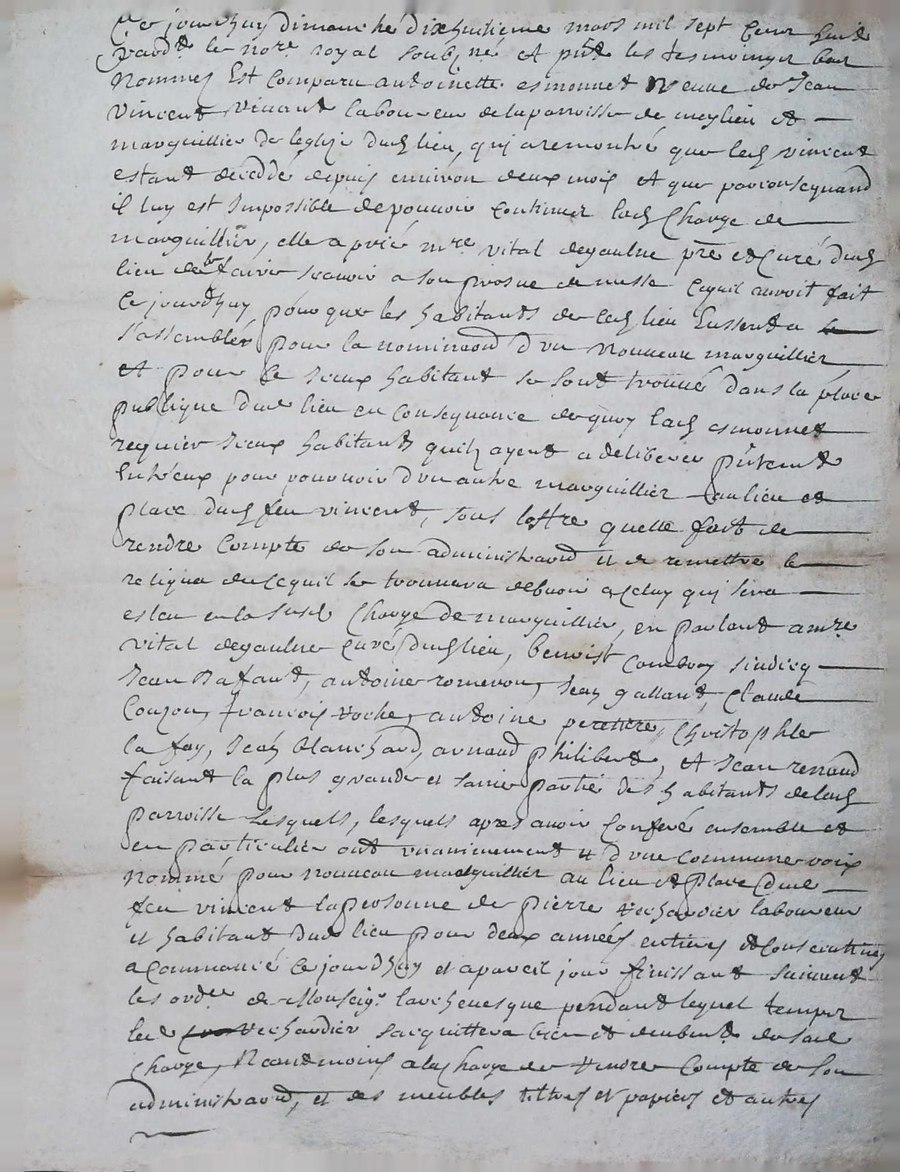 Ce jourdhuy dimanche dixhuitieme mars mil sept cens huit
pardt le nore royal soubzné et pnt les tesmoings bas
nommes Est comparu antoinette esmonnet veuve de Jean
vincent vivant laboureur de la parroisse de meylieu et
marguillier de leglize dud lieu, qui a remontré que led vincent
estant decedé depuis environ deux mois et que par consequand
il luy est Impossible de pouvoir continuer lad Charge de
marguillier, elle a prié mre vital degaulne ptre et curé dud
lieu de faire scavoir a son prosne de messe Ce quil auroit fait
Ce jourdhuy pour que les habitants de Ced lieu Eussent a
sassembler pour la nominaon dun nouveau marguillier
et pour Ce Iceux habitant se sont trouvé dans la place
publique dud lieu en consequance de quoy lad esmonnet
requier Iceux habitants quilz ayent a deliberer pntement
Entreux pour pourvoir dun autre marguillier au lieu et
place dud feu vincent, sous loffre quelle fait de
rendre Compte de son administraon et de remettre le
reliqua de Ce quil se trouvera debvoir a Celuy qui sera
esleu en la susd Charge de marguillier, en parlant a mre
vital degaulne curé dud lieu, benoist Combroy sindicq
Jean Rafand, antoine romeron, Jean gallant, Claude
Couzon, francois Roche, antoine perettre, Christophle
la fay, Jean blanchard, arnaud philibert, et Jean renaud
faisant la plus grande et saine partie des habitants de lad
parroisse lesquels, lesquels apres avoir Conferé ensemble et
en particulier ont unanimement et dune commune voix
nommé pour nouveau marguillier au lieu et place dud
feu vincent la personne de pierre verchandier laboureur
et habitant dud lieu pour deux années entires et consecutives
a commancé Ce jourdhuy et a pareil jour finissant suivant
les ordres de Monseigr larchevesque pendant lequel temps
led verchandier sacquittera bien et deubemt de sad
charge, Neantmoins a la charge de rendre Compte de son
administraon, et des meubles tiltres et papiers et autres